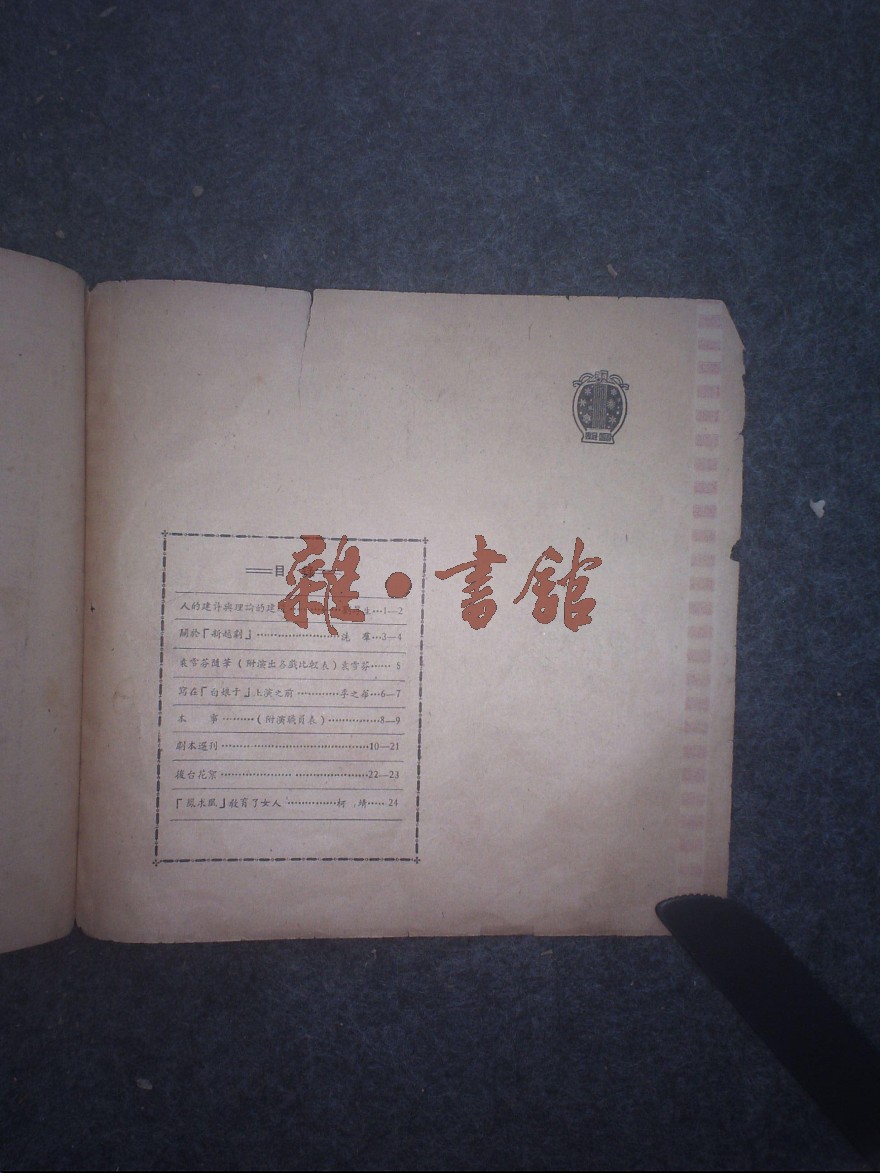 目
雜·書館
人的建設與理論的建 生…1—2
關於「新越劇」………………… 3—4
袁雪芬隨筆(附演出各戲比較表)袁雪芬…… 5
寫在「白娘子」上演之前…………李之華…6—7
本 事………(附演職員表)……………8—9
劇本選刊……………………………………10—21
後台花絮……………………………………22—23
「鳳求凰」教育了女人……………柯 靖……24